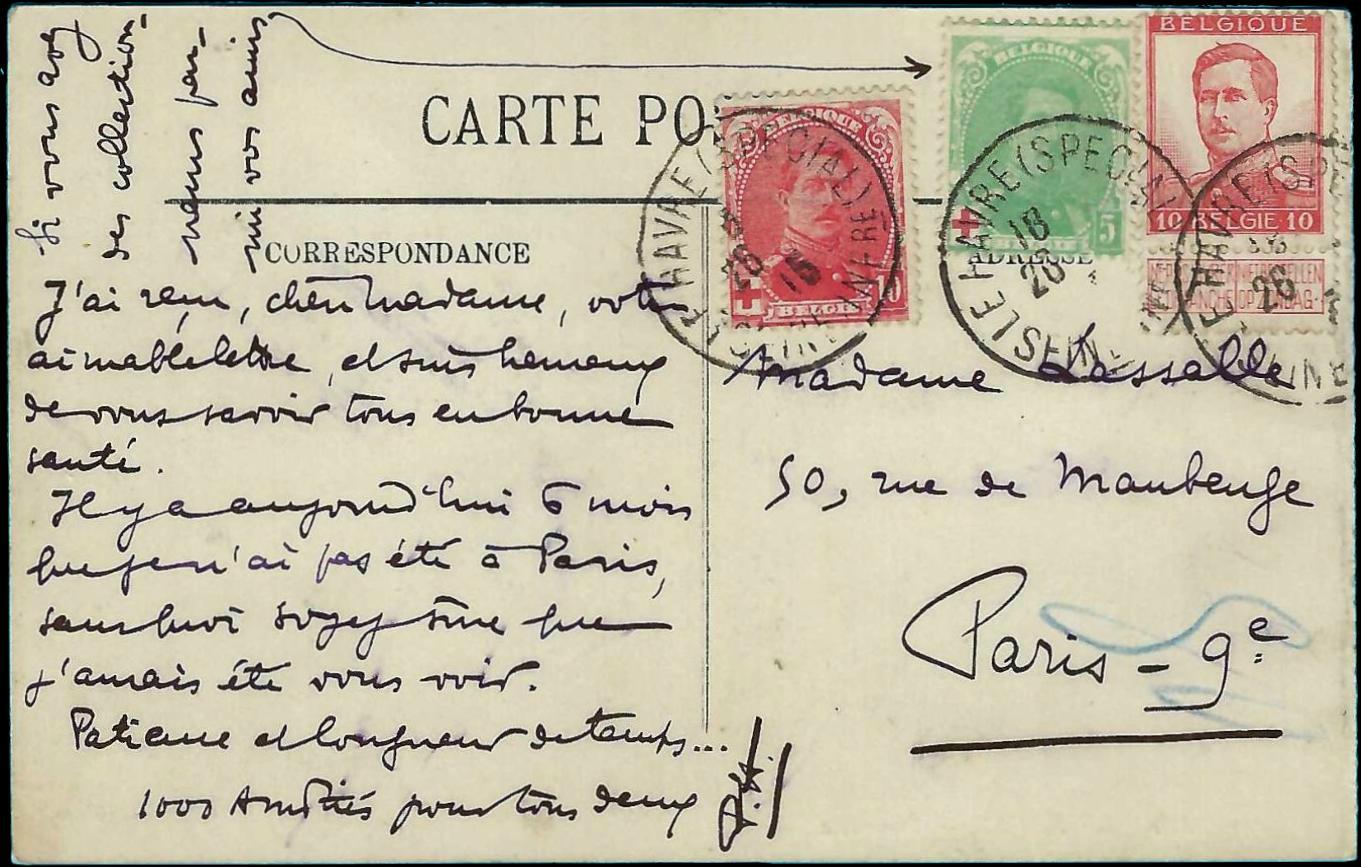 Si vous avez
des collection-
neurs par-
mi vos amis
CARTE PO
CORRESPONDANCE
ADRESSE
J'ai reçu, chère madame, votre
aimable lettre, et suis heureux
de vous savoir tous en bonne
santé.
Il y a aujourd'hui 6 mois
que je n'ai pas été à Paris,
sans quoi soyez sûre que
j'amais été vous voir.
Patience et longueur de temps...
1000 Amitiés pour tous deux
Madame Lassalle
50, rue de Maubeuge
Paris - 9e
BELGIQUE
BELGIE
10
LE HAVRE (SPECIAL)
SEINE INFRE
26
15
BELGIQUE
5
LE HAVRE (SPECIAL
18
26
BELGIQUE
10 BELGIE 10
E HAVRE (SP
26